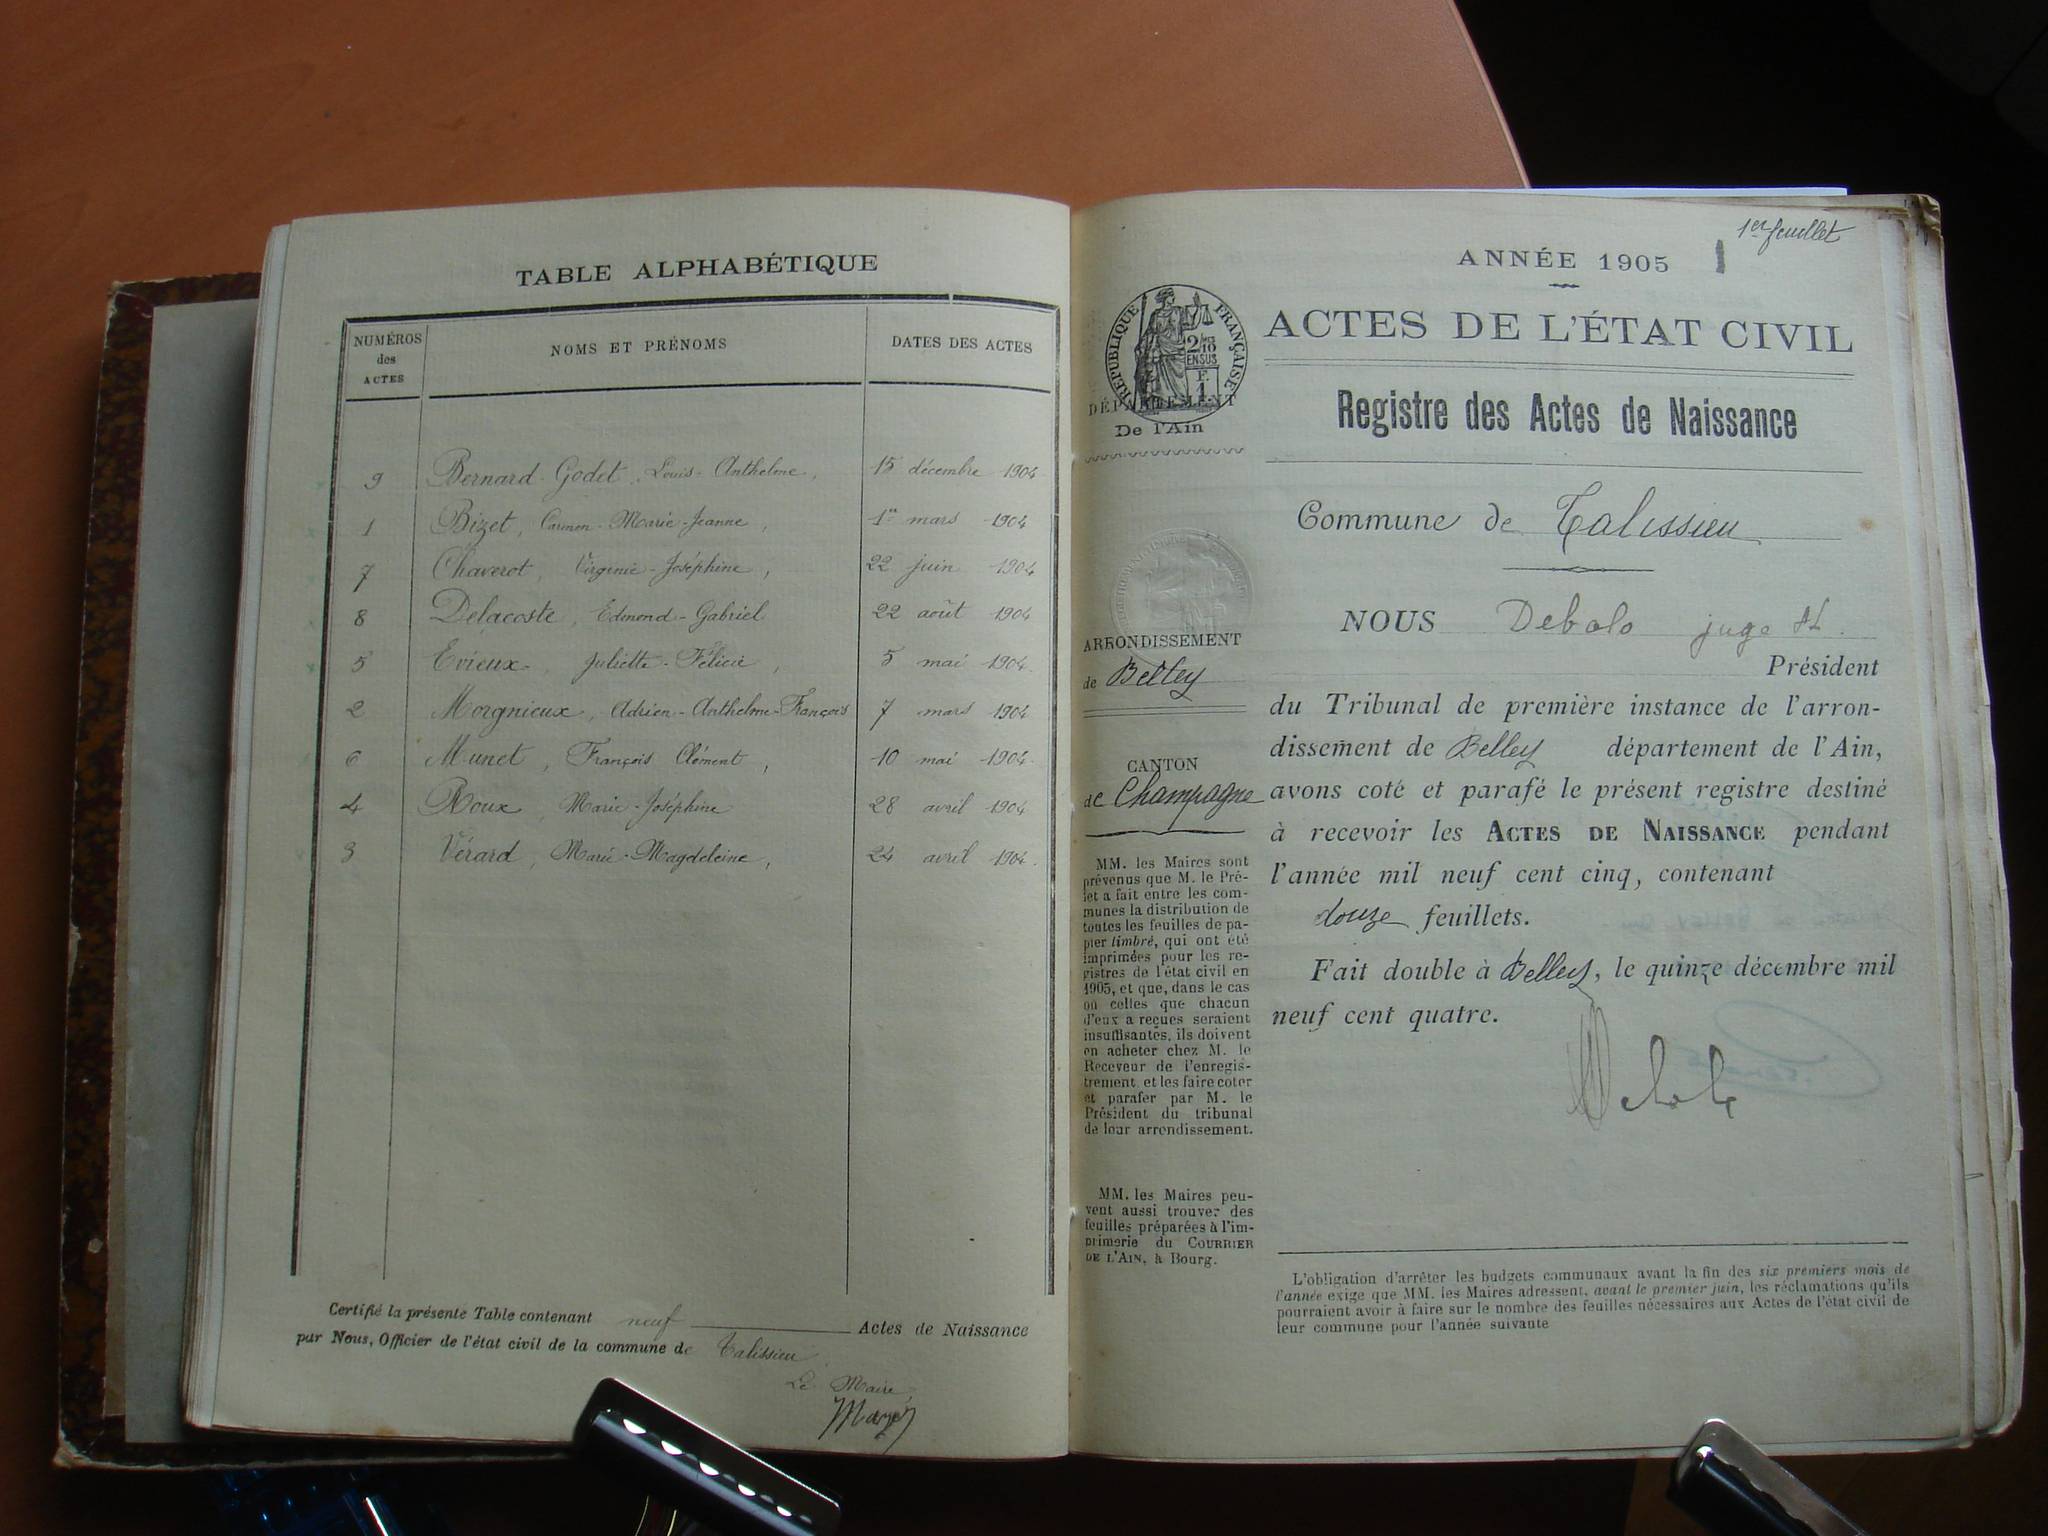 TABLE ALPHABÉTIQUE
NUMÉROS
des
ACTES
NOMS ET PRÉNOMS
DATES DES ACTES
9 Bernard-Godet, Louis-Anthelme, 15 décembre 1904
1 Bizet, Carmen-Marie-Jeanne, 1er mars 1904
7 Chaverot, Virginie-Joséphine, 22 juin 1904
8 Delacoste, Edmond-Gabriel 22 août 1904
5 Evieux, Juliette-Félicie, 5 mai 1904
2 Morgnieux, Adrien-Anthelme-François 7 mars 1904
6 Munet, François Clément, 10 mai 1904
4 Roux, Marie-Joséphine 28 avril 1904
3 Vérard, Marie-Magdeleine, 24 avril 1904
Certifié la présente Table contenant neuf Actes de Naissance
par Nous, Officier de l'état civil de la commune de Talissieu
Le Maire,
1er feuillet
ANNÉE 1905 1
RÉPUBLIQUE FRANÇAISE
2/10
EN SUS
F.
1
DÉPARTEMENT
De l'Ain
ARRONDISSEMENT
de Belley
CANTON
de Champagne
MM. les Maires sont
prévenus que M. le Pré-
fet a fait entre les com-
munes la distribution de
toutes les feuilles de pa-
pier timbré, qui ont été
imprimées pour les re-
gistres de l'état civil en
1905, et que, dans le cas
où celles que chacun
d'eux a reçues seraient
insuffisantes, ils doivent
en acheter chez M. le
Receveur de l'enregis-
trement et les faire coter
et parafer par M. le
Président du tribunal
de leur arrondissement.
MM. les Maires peu-
vent aussi trouver des
feuilles préparées à l'im-
primerie du COURRIER
DE L'AIN, à Bourg.
ACTES DE L'ÉTAT CIVIL
Registre des Actes de Naissance
Commune de Talissieu
NOUS Debolo juge
Président
du Tribunal de première instance de l'arron-
dissement de Belley département de l'Ain,
avons coté et parafé le présent registre destiné
à recevoir les ACTES DE NAISSANCE pendant
l'année mil neuf cent cinq, contenant
douze feuillets.
Fait double à Belley, le quinze décembre mil
neuf cent quatre.
L'obligation d'arrêter les budgets communaux avant la fin des six premiers mois de
l'année exige que MM. les Maires adressent, avant le premier juin, les réclamations qu'ils
pourraient avoir à faire sur le nombre des feuilles nécessaires aux Actes de l'état civil de
leur commune pour l'année suivante